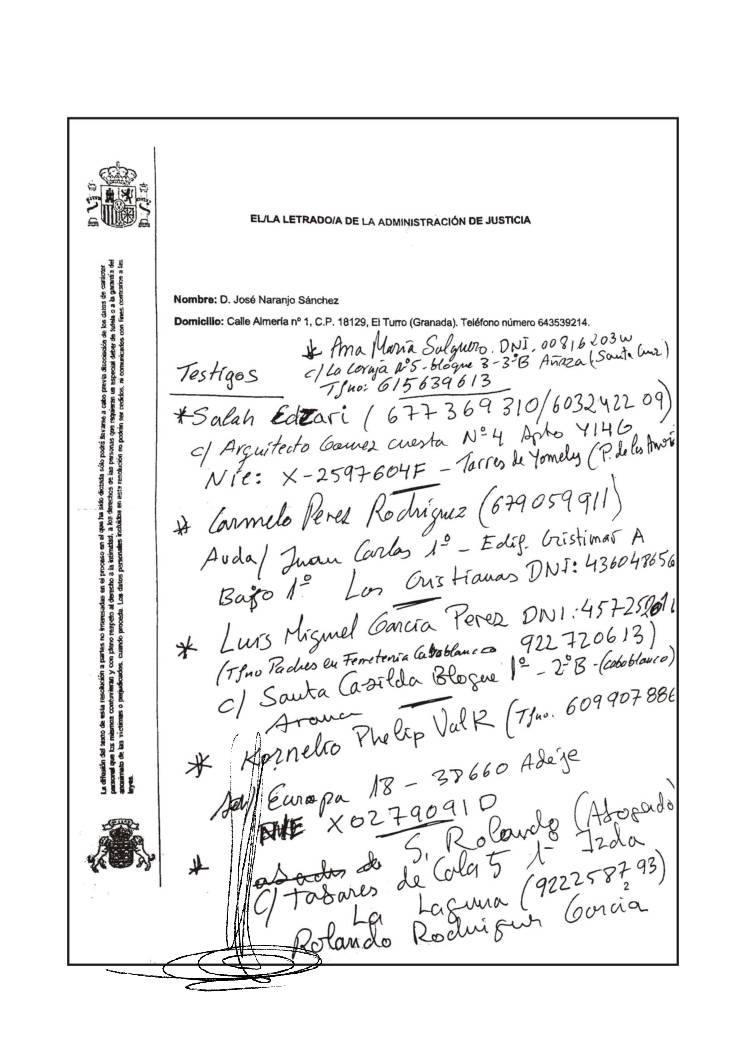 EL/LA LETRADO/A DE LA ADMINISTRACIÓN DE JUSTICIA
Nombre: D. José Naranjo Sánchez
Domicilio: Calle Almería nº 1, C.P. 18129, El Turro (Granada). Teléfono número 643539214.
* Ana María Salguero. DNI. 00816203W
Testigos
c/ La Coruja nº5-bloque 3-3ºB Añaza (Santa Cruz)
Tfno: 615639613
*Salah Edzari (677369310/603242209)
c/ Arquitecto Gomez cuesta Nº4 Apto Y146
Nie: X-2597604F - Torres de Yomely (P. de las
* Carmelo Perez Rodríguez (679059911)
Avda/ Juan Carlos 1º - Edif. Cristimar A
Bajo 1º Los Cristianos DNI: 43604865G
* Luis Miguel García Perez DNI.:
(Tfno Padres en Ferretería Caboblanco 922720613)
c/ Santa Casilda Bloque 1º - 2ºB -(caboblanco)
Arona
* Kornelio Phelip Valk (Tfno. 609907886
Av/ Europa 18 - 38660 Adeje
NIE X0279091D
* S. Rolando (Abogado)
C/ Tabares de Cala 5 1º Izda
La Laguna (922258793)
Rolando Rodriguez García
La difusión del texto de esta resolución a partes no interesadas en el proceso en el que ha sido dictada sólo podrá llevarse a cabo previa disociación de los datos de carácter
personal que los mismos contuvieran y con pleno respeto al derecho a la intimidad, a los derechos de las personas que requieran un especial deber de tutela o a la garantía del
anonimato de las víctimas o perjudicados, cuando proceda. Los datos personales incluidos en esta resolución no podrán ser cedidos, ni comunicados con fines contrarios a las
leyes.